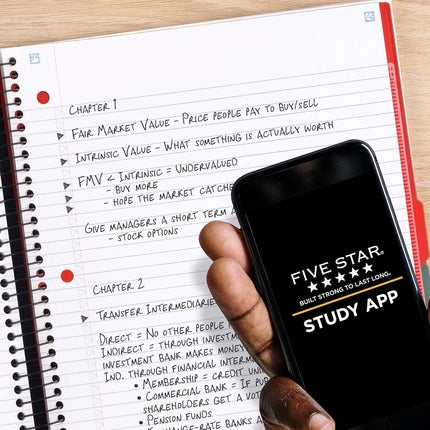 CHAPTER 1
FAIR MARKET VALUE - PRICE PEOPLE PAY TO BUY/SELL
INTRINSIC VALUE - WHAT SOMETHING IS ACTUALLY WORTH
FMV < INTRINSIC = UNDERVALUED
- BUY MORE
- HOPE THE MARKET CATCHE
GIVE MANAGERS A SHORT TERM
- STOCK OPTIONS
CHAPTER 2
TRANSFER INTERMEDIARIE
DIRECT = NO OTHER PEOPLE
INDIRECT = THROUGH INVESTM
INVESTMENT BANK MAKES MONEY
IND. THROUGH FINANCIAL INTERM
• MEMBERSHIP = CREDIT UNI
• COMMERCIAL BANK = IF PUB
SHAREHOLDERS GET A VOT
• PENSION FUNDS
• EXCHANGE-RATE BANKS A
FIVE STAR®
★★★★★
BUILT STRONG TO LAST LONG™
STUDY APP